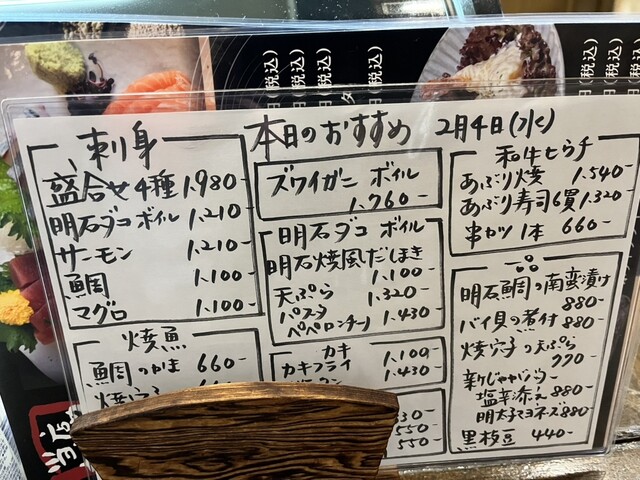 本日のおすすめ 2月4日(水)
刺身
盛合せ4種 1,980-
明石ダコ ボイル 1,210
サーモン 1,210-
鯛 1,100-
マグロ 1,100-
焼魚
鯛のかま 660-
焼穴子
ズワイガニ ボイル
1,760-
明石ダコ ボイル
明石焼風だしまき
1,100-
天ぷら 1,320-
パスタ
ペペロンチーノ 1,430-
カキ
カキフライ 1,100-
1,430-
330-
550-
550-
和牛ヒウチ
あぶり焼 1,540-
あぶり寿司6貫 1,320
串カツ 1本 660-
一品
明石鯛の南蛮漬け
880-
バイ貝の煮付 880-
焼穴子の天ぷら
770-
新じゃがバター
塩辛添え 880-
明太子マヨネーズ 880-
黒枝豆 440-
(税込)
(税込)
(税込)
円(税込)
円(税込)
円(税込)
当店